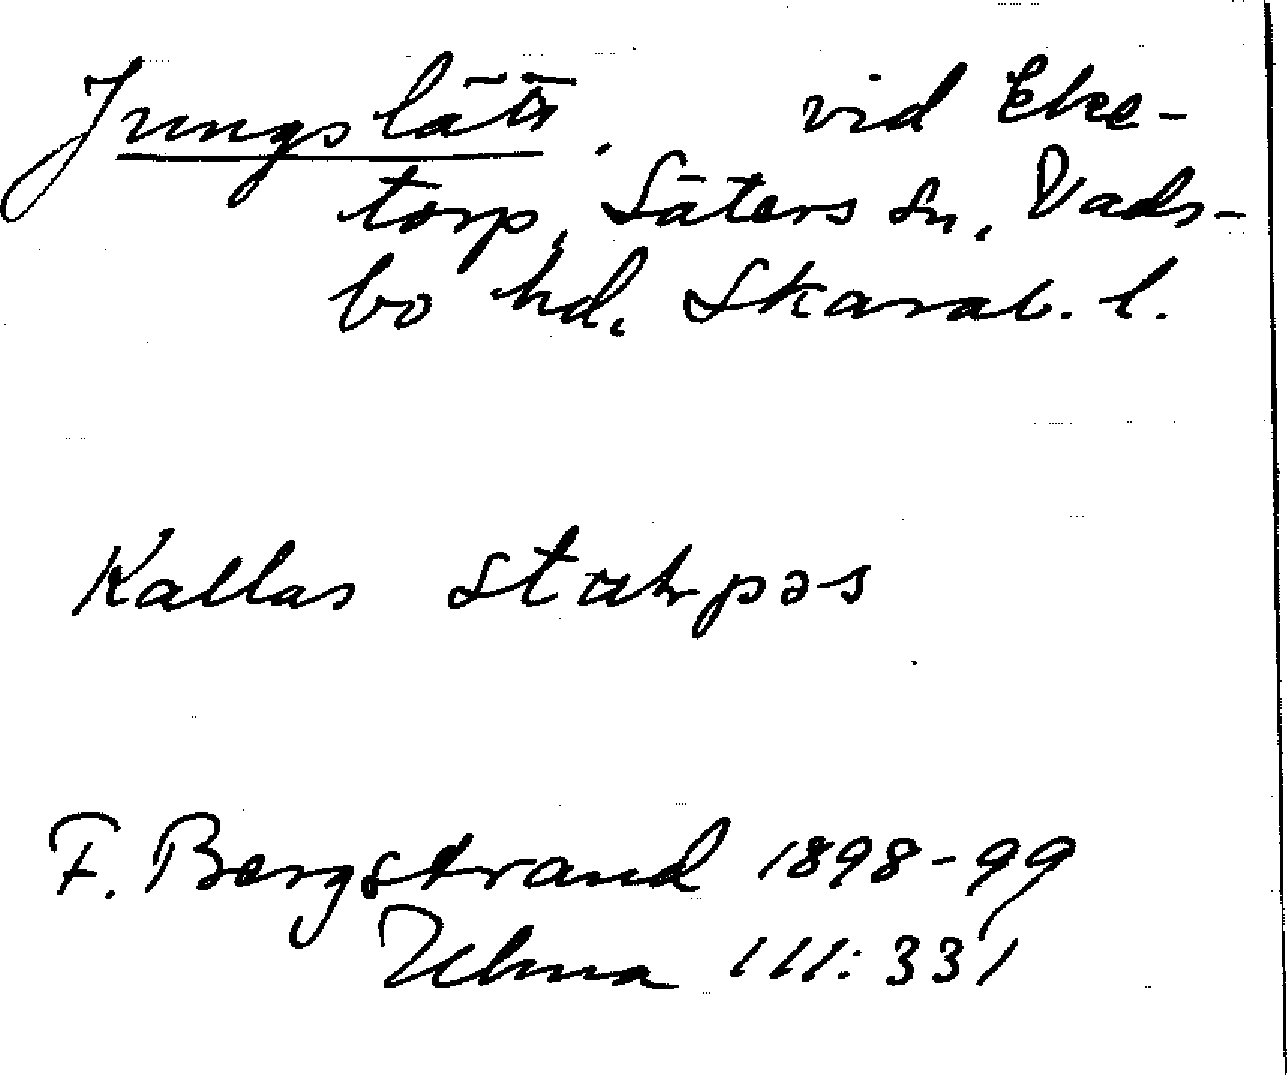 Jungslätt. vid Eke-
torp, Säters sn, Vads-
bo hd, Skarab. l.
Kallas
F. Bergstrand 1898-99
Ulma 111:331